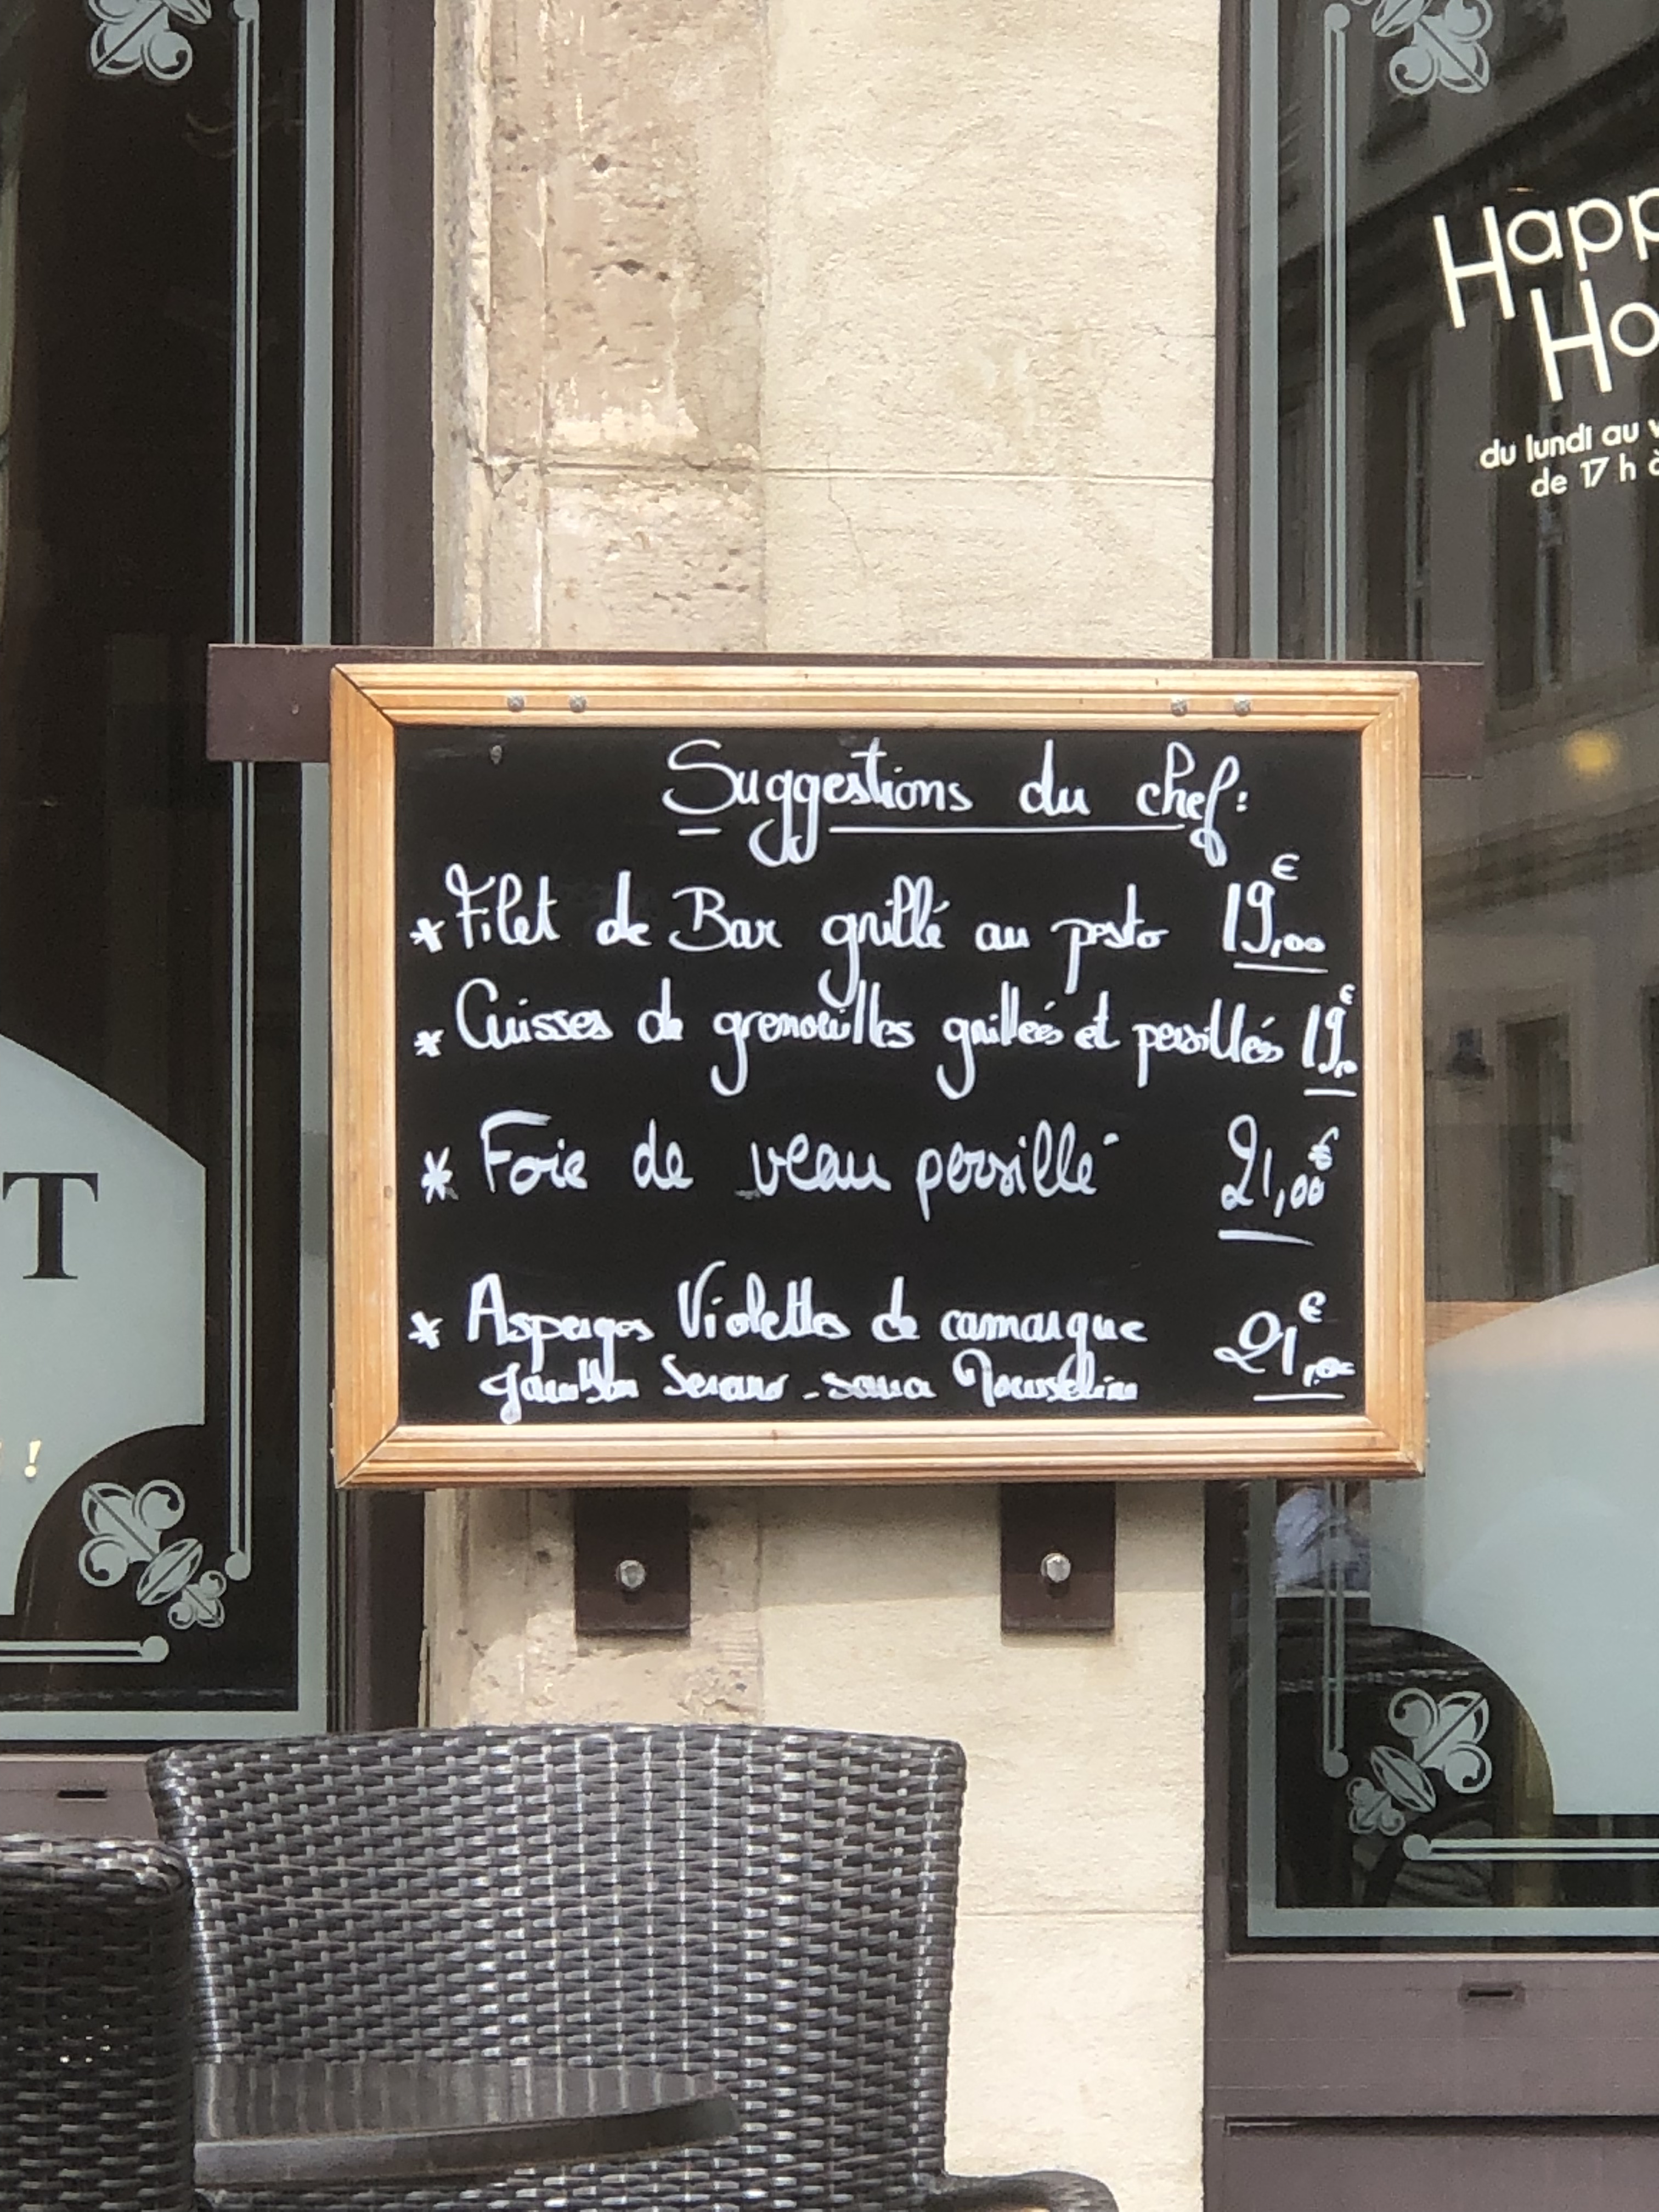 Happ
Ho
du lundi au v
de 17 h à
Suggestions du chef:
* Filet de Bar grillé au pesto 19,00 €
* Cuisses de grenouilles grillées et persillés 19,00 €
* Foie de veau persillé 21,00 €
* Asperges Violettes de camargue 21,00 €
Jambon Serano - sauce Mousseline
T
!